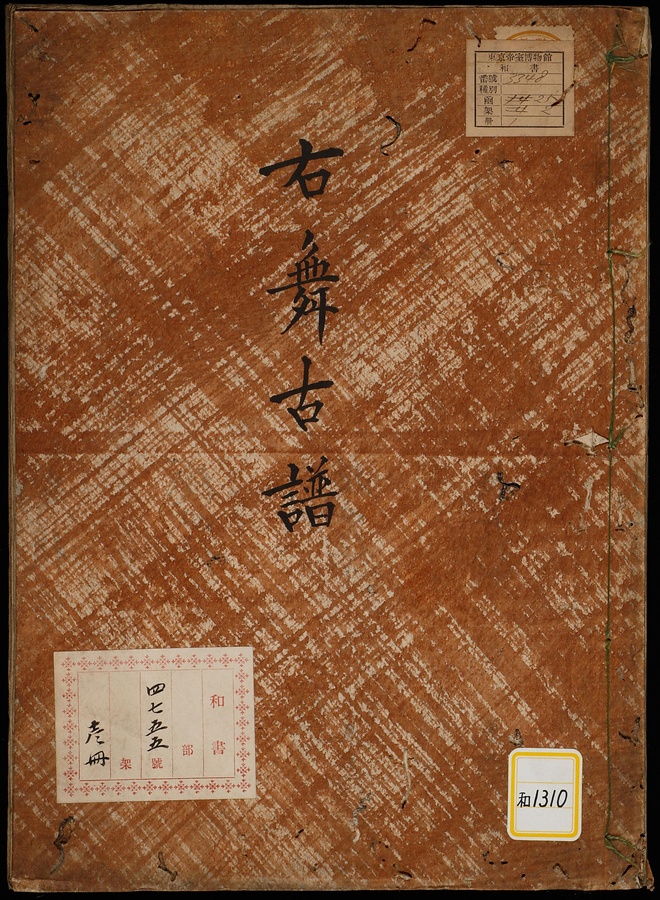 右舞古譜
東京帝室博物館
和書
番號 3348
種別
函
架
冊
和書
部
四七五五號
架
壱冊
和1310